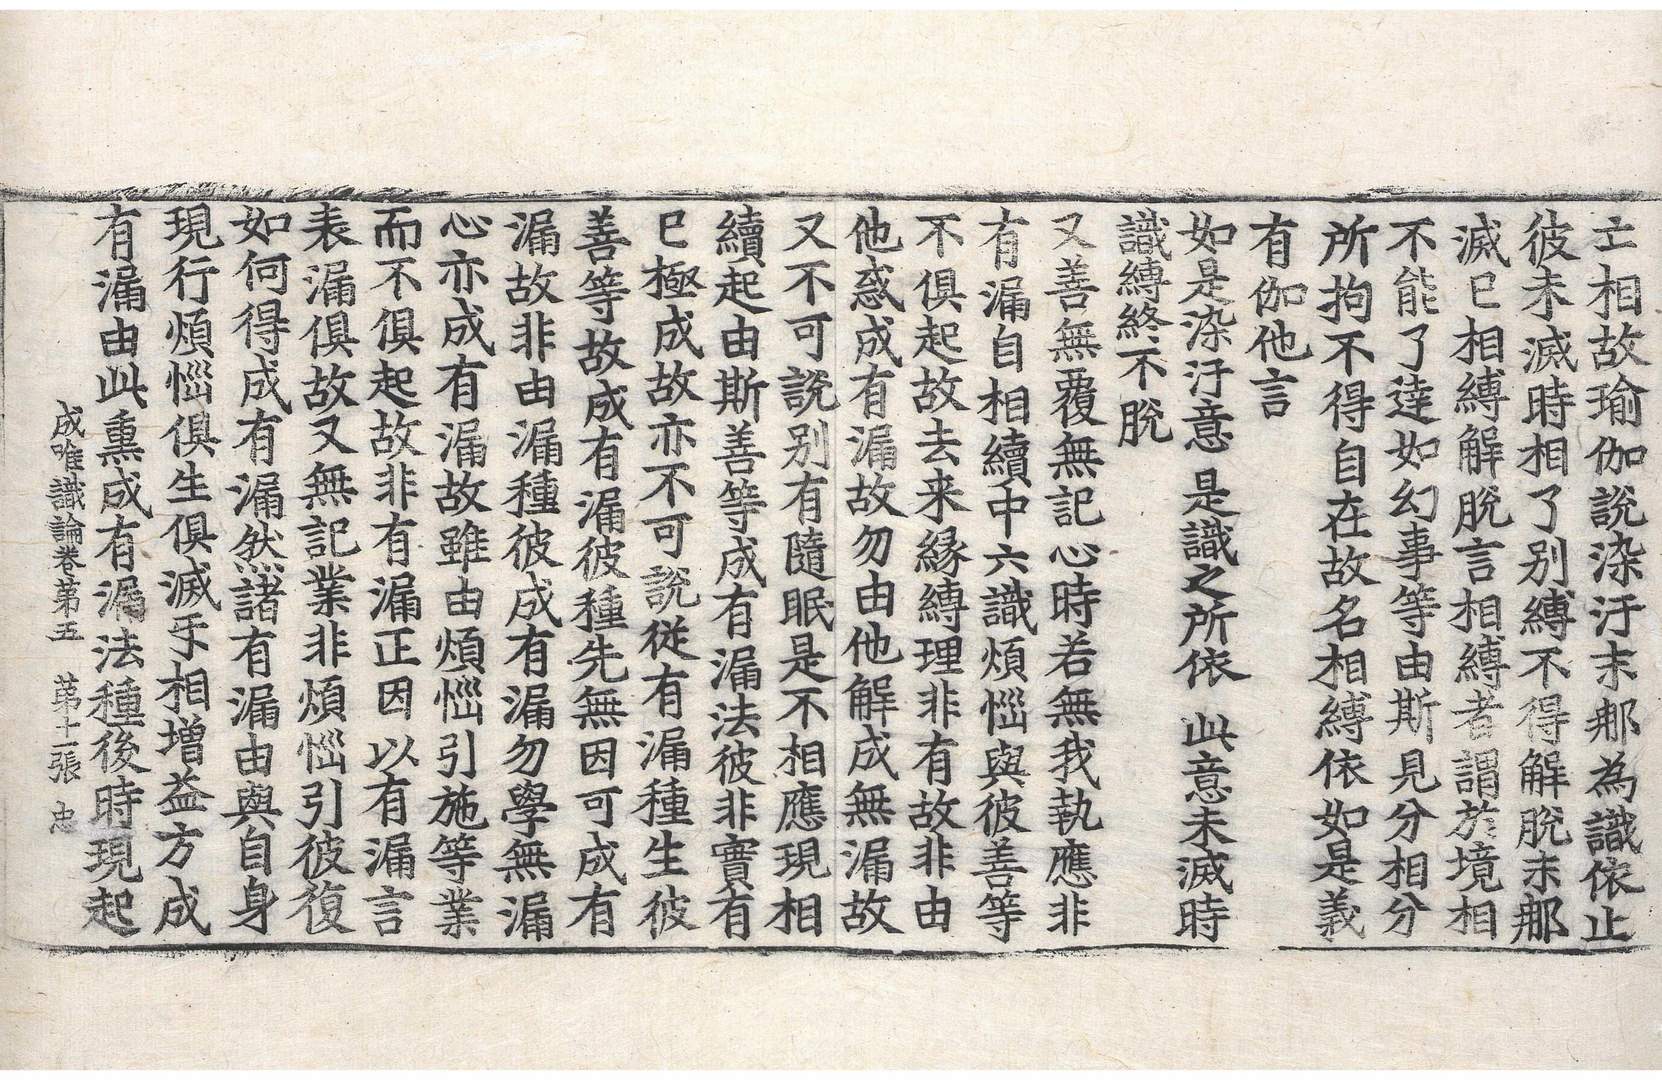 亡相故瑜伽說染汙末那為識依止
彼未滅時相了別縛不得解脫末那
滅已相縛解脫言相縛者謂於境相
不能了達如幻事等由斯見分相分
所拘不得自在故名相縛依如是義
有伽他言
如是染汙意 是識之所依 此意未滅時
識縛終不脫
又善無覆無記心時若無我執應非
有漏自相續中六識煩惱與彼善等
不俱起故去来緣縛理非有故非由
他惑成有漏故勿由他解成無漏故
又不可說別有隨眠是不相應現相
續起由斯善等成有漏法彼非實有
已極成故亦不可說從有漏種生彼
善等故成有漏彼種先無因可成有
漏故非由漏種彼成有漏勿學無漏
心亦成有漏故雖由煩惱引施等業
而不俱起故非有漏正因以有漏言
表漏俱故又無記業非煩惱引彼復
如何得成有漏然諸有漏由與自身
現行煩惱俱生俱滅互相增益方成
有漏由此熏成有漏法種後時現起
成唯識論卷第五 第十一張 忠